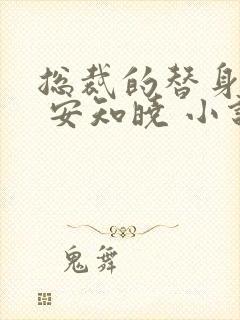 总裁的替身
安知晓 小
鬼舞